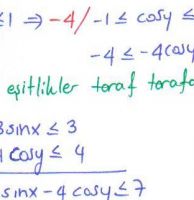 ≤1 ⇒ -4/ -1 ≤ cosy ≤
-4 ≤ -4cosy
eşitlikler taraf tarafa
3sinx ≤ 3
4 cosy ≤ 4
sinx - 4 cosy ≤ 7